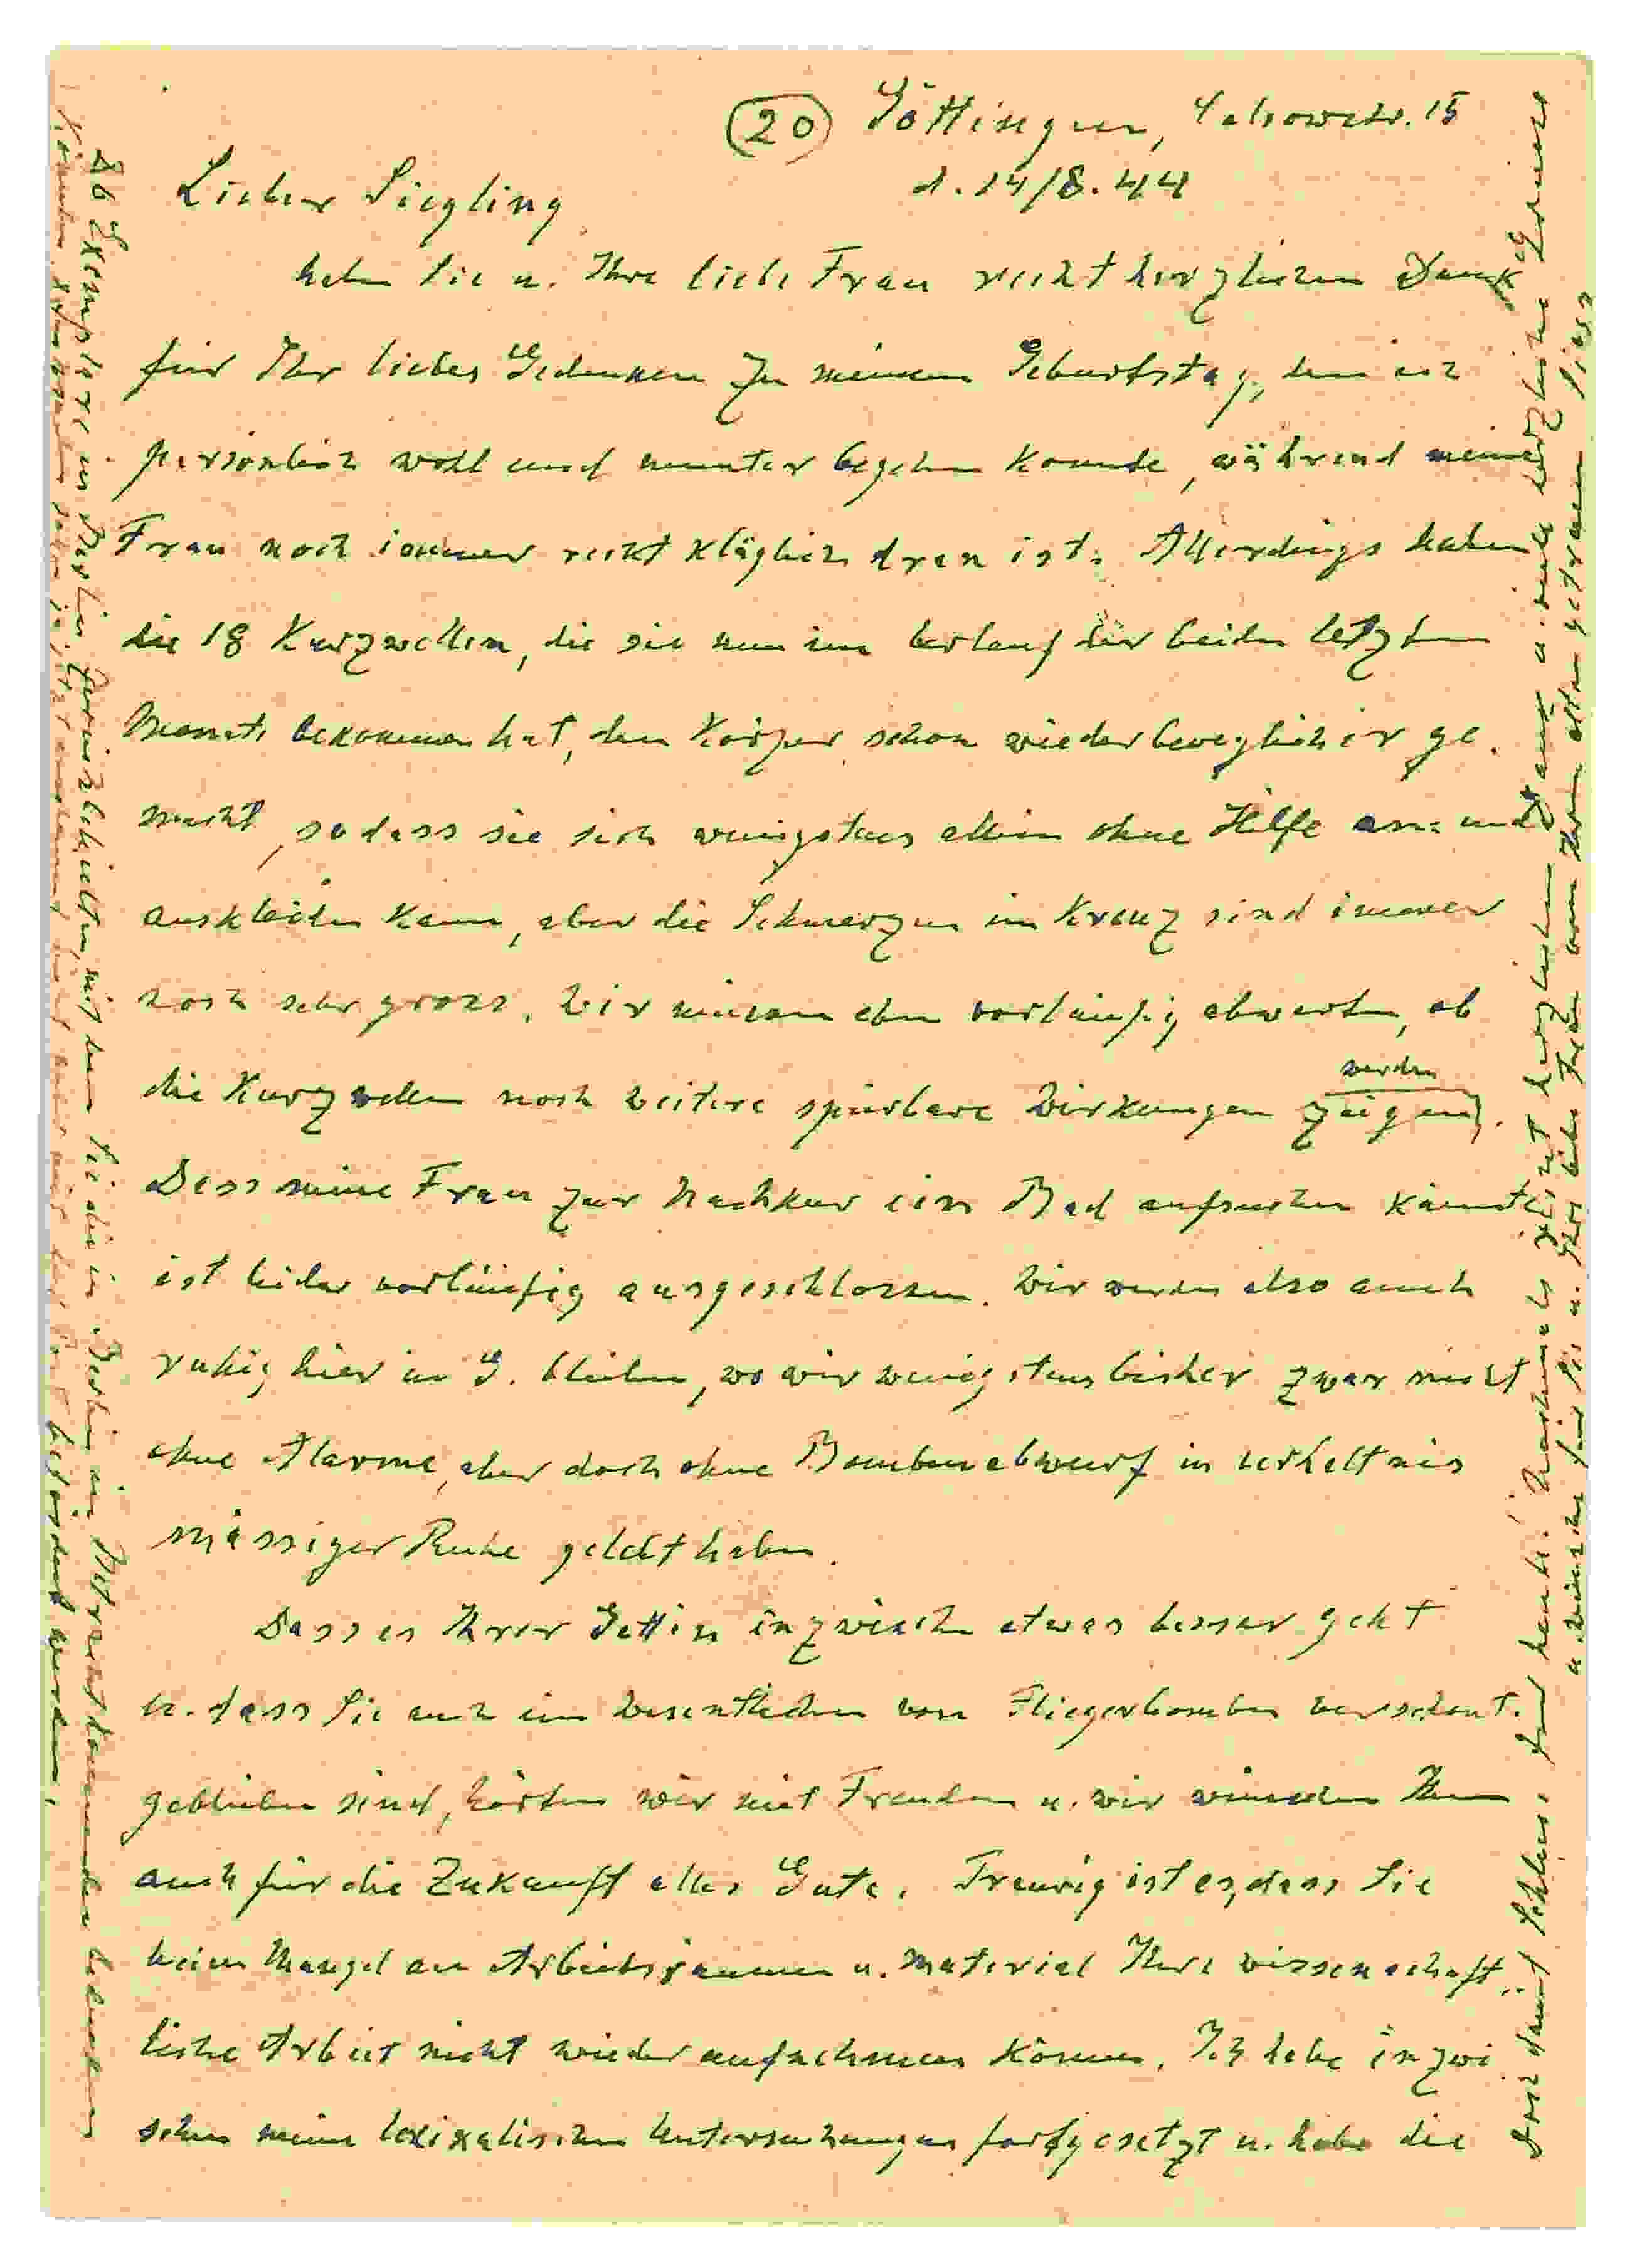 (20) Göttingen, Calsowstr. 15
d. 14/8. 44
Lieber Siegling,
haben Sie u. Ihre liebe Frau recht herzlichen Dank
für Ihr liebes Gedenken zu meinem Geburtstag, den ich
persönlich wohl und munter begehen konnte, während meine
Frau noch immer recht kläglich dran ist. Allerdings haben
die 18 Kurzwellen, die sie nun im Verlauf der beiden letzten
Monate bekommen hat, den Körper schon wieder beweglicher ge-
macht, so dass sie sich wenigstens allein ohne Hilfe an- und
auskleiden kann, aber die Schmerzen im Kreuz sind immer
noch sehr gross. Wir müssen eben vorläufig abwarten, ob
die Kurzwellen noch weitere spürbare Wirkungen zeigen werden.
Dass meine Frau zur Nachkur ein Bad aufsuchen könnte
ist leider vorläufig ausgeschlossen. Wir werden also auch
ruhig hier in G. bleiben, wo wir wenigstens bisher zwar nicht
ohne Alarme, aber doch ohne Bombenabwurf in verhältnis
mässiger Ruhe gelebt haben.
Dass es Ihrer Gattin inzwischen etwas besser geht
u. dass Sie auch im Wesentlichen von Fliegerbomben verschont
geblieben sind, hörten wir mit Freuden u. wir wünschen Ihnen
auch für die Zukunft alles Gute. Traurig ist es, dass Sie
beim Mangel an Arbeitsräumen u. Material Ihre wissenschaft-
liche Arbeit nicht wieder aufnehmen können. Ich habe inzwi
schen meine lexikalischen Untersuchungen fortgesetzt u. habe die
Doch damit Schluss für heute! Nochmals recht herzlichen Dank u. viele herzliche Grüsse
u. Wünsche für Sie u. Ihre liebe Frau von Ihrem alten getreuen Sieg
86 Exemplare in Berlin zurückbehielten, mit denen Sie die in Berlin in Betracht kommenden bedenken
können. Versandt werden befördert werden.